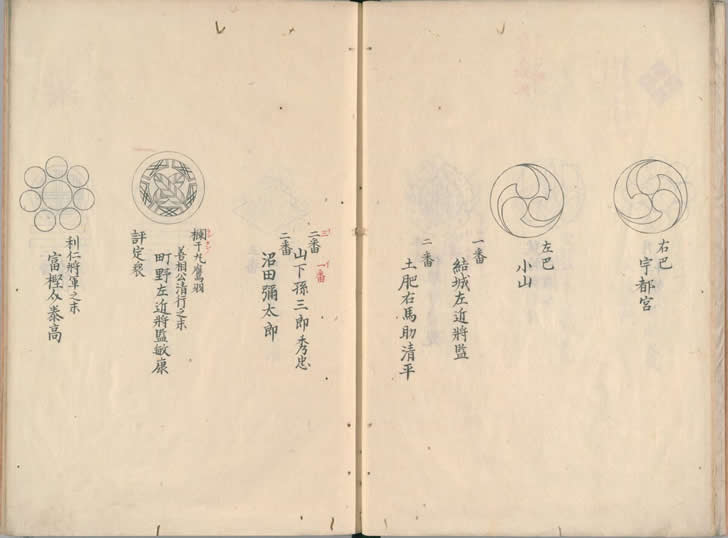 右巴
宇都宮
左巴
小山
一番
結城左近將監
二番
土肥右馬助清平
三
二番
一番
山下孫三郎秀忠
二番
沼田彌太郎
欄干丸鷹羽
善相公清行之末
町野左近將監敏康
評定衆
利仁將軍之末
冨樫介泰高